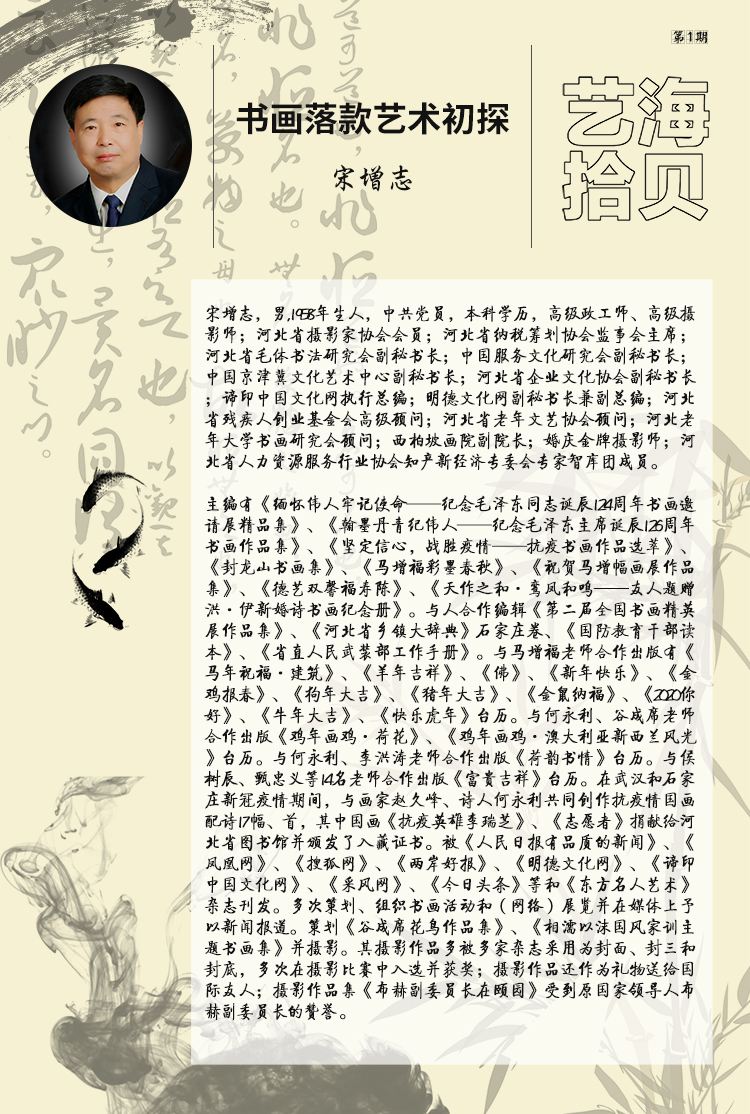 第1期
书画落款艺术初探
宋增志
艺海
拾贝
宋增志，男,1958年生人，中共党员，本科学历，高级政工师、高级摄
影师；河北省摄影家协会会员；河北省纳税筹划协会监事会主席；
河北省毛体书法研究会副秘书长；中国服务文化研究会副秘书长；
中国京津冀文化艺术中心副秘书长；河北省企业文化协会副秘书长
；谛印中国文化网执行总编；明德文化网副秘书长兼副总编；河北
省残疾人创业基金会高级顾问；河北省老年文艺协会顾问；河北老
年大学书画研究会顾问；西柏坡画院副院长；婚庆金牌摄影师；河
北省人力资源服务行业协会知产新经济专委会专家智库团成员。
主编有《缅怀伟人牢记使命——纪念毛泽东同志诞辰124周年书画邀
请展精品集》、《翰墨丹青纪伟人——纪念毛泽东主席诞辰126周年
书画作品集》、《坚定信心，战胜疫情——抗疫书画作品选萃》、
《封龙山书画集》、《马增福彩墨春秋》、《祝贺马增幅画展作品
集》、《德艺双馨福寿陈》、《天作之和·鸾凤和鸣——友人题赠
洪·伊新婚诗书画纪念册》。与人合作编辑《第二届全国书画精英
展作品集》、《河北省乡镇大辞典》石家庄卷、《国防教育干部读
本》、《省直人民武装部工作手册》。与马增福老师合作出版有《
马年祝福·建筑》、《羊年吉祥》、《佛》、《新年快乐》、《金
鸡报春》、《狗年大吉》、《猪年大吉》、《金鼠纳福》、《2020你
好》、《牛年大吉》、《快乐虎年》台历。与何永利、谷成席老师
合作出版《鸡年画鸡·荷花》、《鸡年画鸡·澳大利亚新西兰风光
》台历。与何永利、李洪涛老师合作出版《荷韵书情》台历。与侯
树辰、甄忠义等14名老师合作出版《富贵吉祥》台历。在武汉和石家
庄新冠疫情期间，与画家赵久峰、诗人何永利共同创作抗疫情国画
配诗17幅、首，其中国画《抗疫英雄李瑞芝》、《志愿者》捐献给河
北省图书馆并颁发了入藏证书。被《人民日报有品质的新闻》、《
凤凰网》、《搜狐网》、《两岸好报》、《明德文化网》、《谛印
中国文化网》、《采风网》、《今日头条》等和《东方名人艺术》
杂志刊发。多次策划、组织书画活动和（网络）展览并在媒体上予
以新闻报道。策划《谷成席花鸟作品集》、《相濡以沫国风家训主
题书画集》并摄影。其摄影作品多被多家杂志采用为封面、封三和
封底，多次在摄影比赛中入选并获奖；摄影作品还作为礼物送给国
际友人；摄影作品集《布赫副委员长在颐园》受到原国家领导人布
赫副委员长的赞誉。